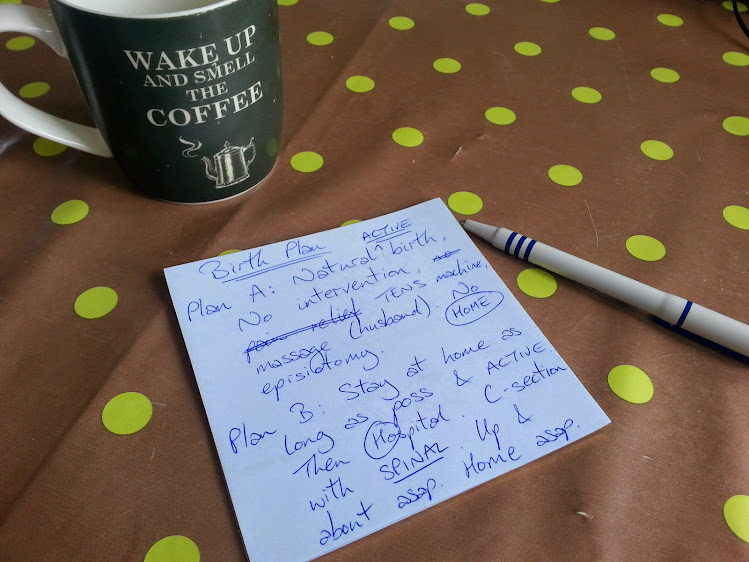 WAKE UP
AND SMELL
THE
COFFEE
Birth Plan
Plan A: Natural ACTIVE birth,
No intervention,
pain relief TENS machine,
massage (husband) No
episilotomy. HOME
Plan B: Stay at home as
long as poss & ACTIVE.
Then Hospital. C-section
with SPINAL. Up &
about asap. Home asap.